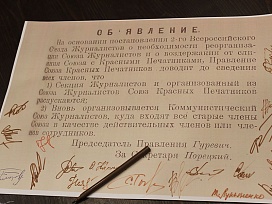 ОБ'ЯВЛЕНИЕ.
На основании постановления 2-го Всероссийского
Съезда Журналистов о необходимости реорганизации
Союза Журналистов и о воздержании от слияния
Союза с Красными Печатниками, Правление
Союза Красных Печатников доводит до сведения
всех членов, что
1) Секция Журналистов и организованный из
Союза Журналистов Союз Красных Печатников
распускаются;
2) Вновь организовывается Коммунистический
Союз Журналистов, куда входят все старые члены
Союза в качестве действительных членов или членов
сотрудников.
Председатель Правления Гуревич.
За Секретаря Порецкий.